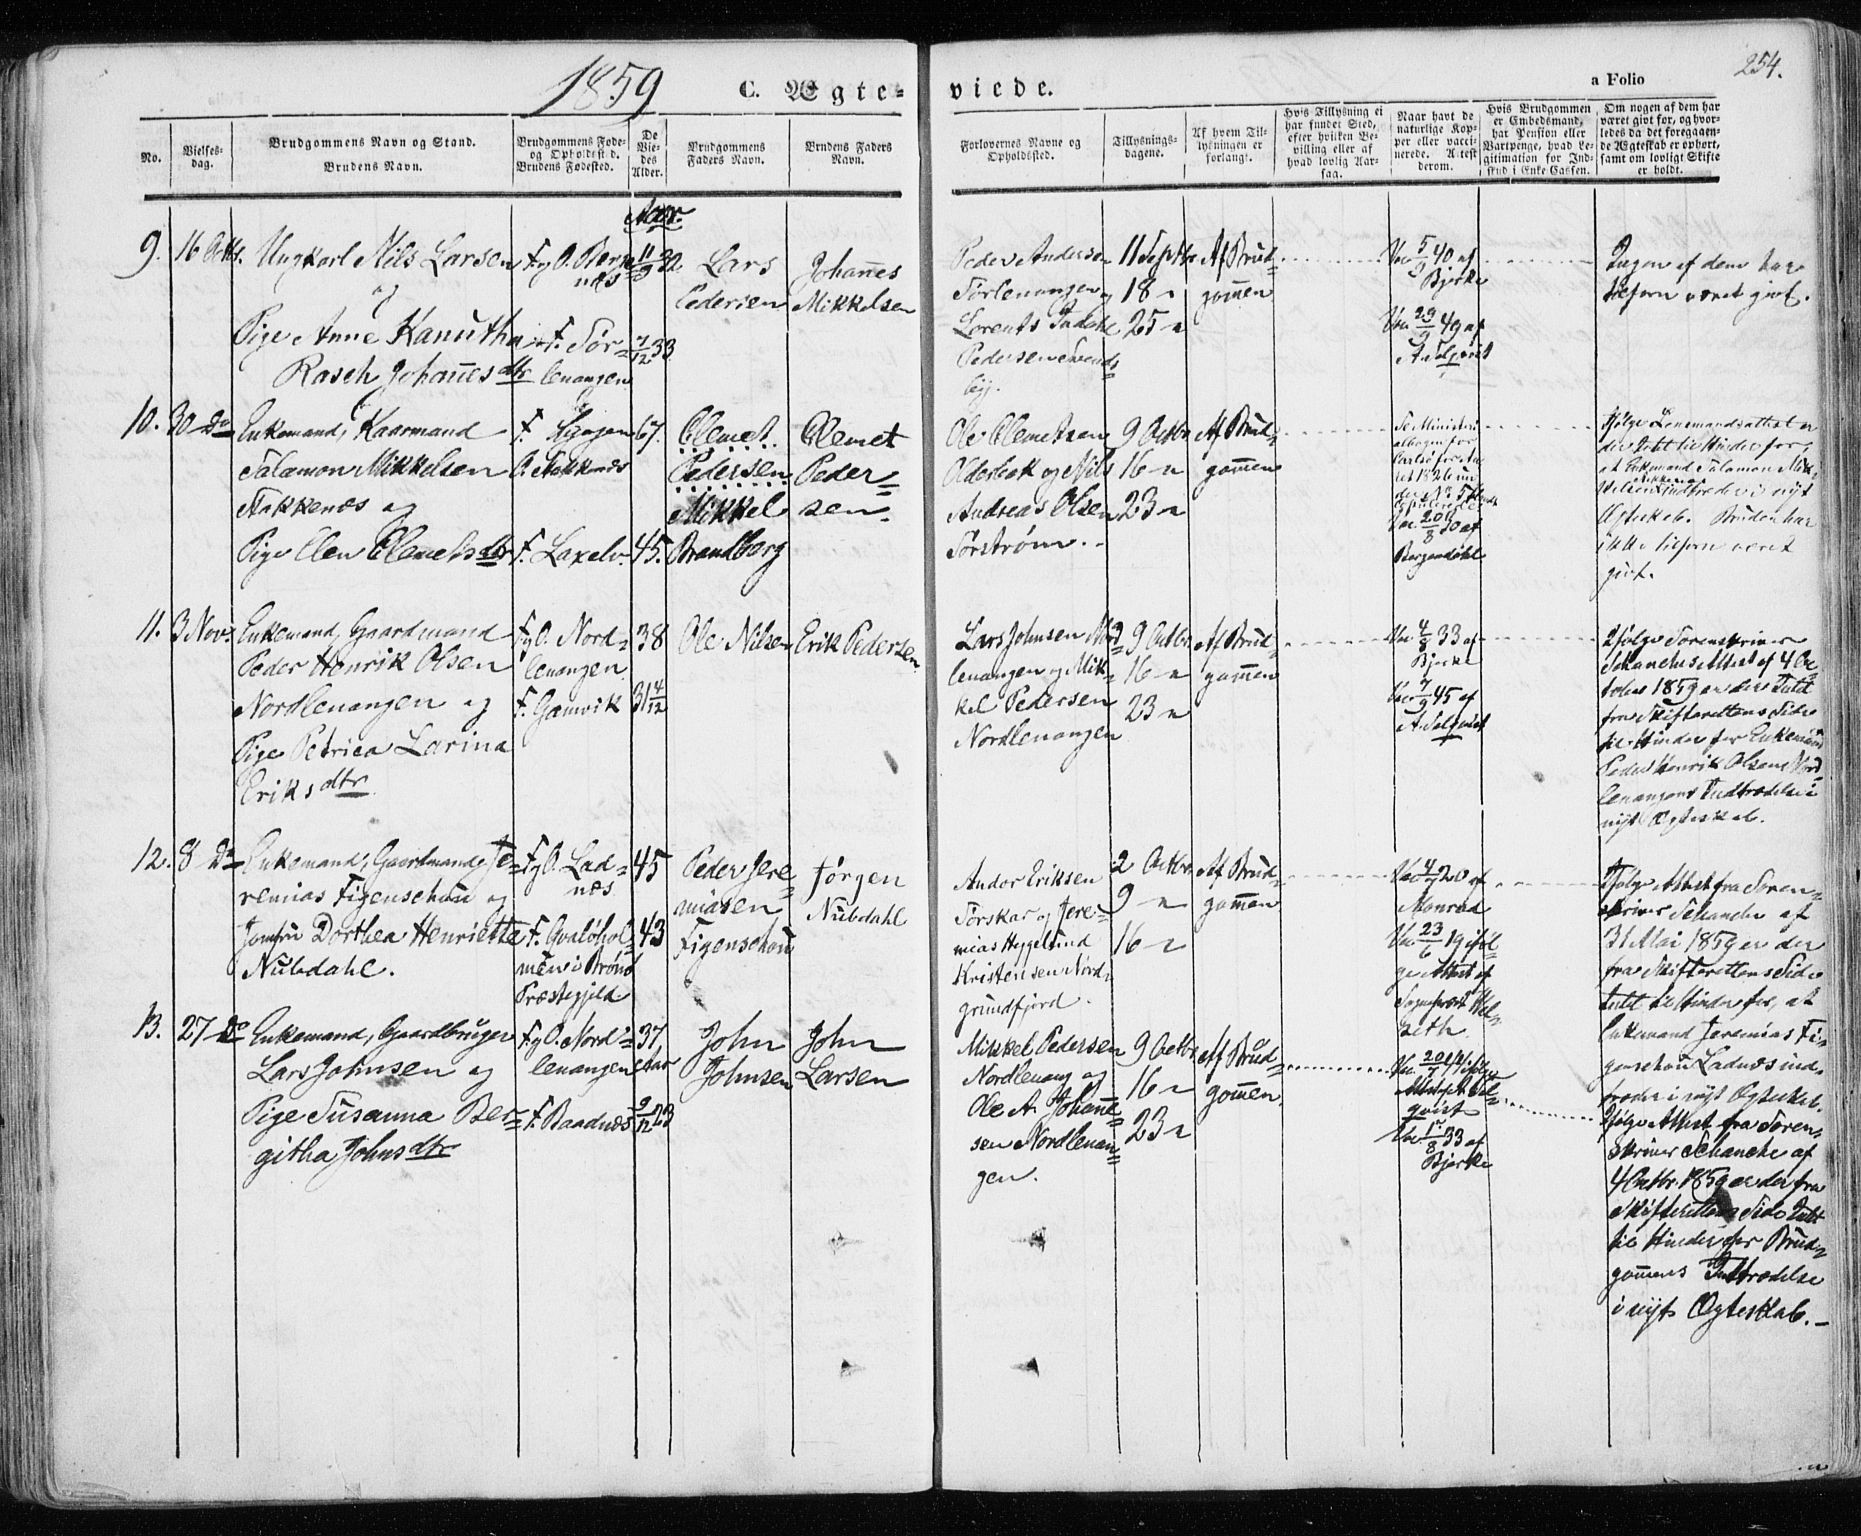 1859
C. Ægte-
viede.
a Folio
254.
No.
Vielses-
dag.
Brudgommens Navn og Stand.
Brudens Navn.
Brudgommens Føde-
og Opholdssted.
Brudens Fødested.
De
Vie-
des
Alder.
Brudgommens
Faders Navn.
Brudens Faders
Navn.
Forlovernes Navne og
Opholdssted.
Tillysnings-
dagene.
Af hvem Til-
lysningen er
forlangt.
Hvis Tillysning ei
har fundet Sted,
efter hvilken Be-
villing eller af
hvad lovlig Aar-
sag.
Naar havt de
naturlige Kop-
per eller vacci-
nerede. Attest
derom.
Hvis Brudgommen
er Embedsmand,
har Pension eller
Vartpenge, hvad Le-
gitimation for Ind-
skud i Enke Cassen.
Om nogen af dem har
været givt før, og hvor-
ledes da det foregaaen-
de Ægteskab er ophørt,
samt om lovligt Skifte
er holdt.
Aar.
9. 16 Octbr.
Ungkarl Nils Larsen
og
Pige Anne Kanutha
Rasch Johannesdtr
F. og O. Berg=
næs
F. Sør=
lenangen
11/9 32
7/12 33
Lars
Pedersen
Johannes
Mikkelsen
Peder Andersen
Sørlenangen og
Lorents
Pedersen Svends=
by.
11 Septbr
18 "
25 "
Af Brud=
gommen
Vac 5/9 40 af
Bjerke
Vac 29/9 49 af
Ingen af dem har
tilforn været givt.
10. 30 Do
Enkemand, Kaarmand
Salamon Mikkelsen
Stakkenæs og
Pige Elen Clemetsdtr
F. Lyngen
O. Stakkenæs
F. Laxelv
67.
45.
Clemet
Pedersen
Mikkel
Brandberg
Clemet
Peder=
sen.
Ole Clemetsen
Olderbak og Nils
Andreas Olsen
Sørstrøm.
9 Octbr
16 "
23 "
Af Brud=
gommen
Se Ministeri
albogen for
Vac 20/8 50 af
Bergendahl
Ifølge Lensmandsattest er
der Intet til Hinder for,
at Enkemand Salamon Mik=
kelsen Stakkenæs indtræder i nyt
Ægteskab. Bruden har
ikke tilforn været
givt.
11. 3 Nov.
Enkemand, Gaardmand
Peder Henrik Olsen
Nordlenangen og
Pige Petrica Larina
Eriksdtr
F. og O. Nord=
lenangen
F. Gamvik
38
31 4/12
Ole Nilsen
Erik Pedersen
Lars Johnsen Nord
lenangen og Mik=
kel Pedersen
Nordlenangen
9 Octbr
16 "
23 "
Af Brud=
gommen
Vac 4/8 33 af
Bjerke
Vac 7/9 45 af
Ifølge Sorenskriver
Schanches Attest af 4 Oc
tober 1859 er der Intet
fra Skifterettens Side
til Hinder for Enkemand
Peder Henrik Olsen Nord
lenangens Indtrædelse i
nyt Ægteskab.
12. 8 Do
Enkemand, Gaardmand Je=
remias Figenschou og
Jomfru Dorthea Henriette
Nubdahl.
F. og O. Lad=
næs
F. Gvaløhol=
men i Brønø
Præstegjeld
45
43
Peder Jere=
miasen
Figenschou
Jørgen
Nubdahl
Andor Eriksen
Sørskar og Jere=
mias Heggelund
Kristensen Nord=
grundfjord.
2 Octbr
9 "
16 "
Af Brud=
gommen
Vac 4/7 20 af
Monrad
Vac 23/6 19 iføl
ge Attest af
Ifølge Attest fra Soren=
skriver Schanche af
31 Mai 1859 er der
fra Skifterettens Side
Intet til Hinder for, at
Enkemand Jeremias Fi=
genschou Ladnæs ind=
træder i nyt Ægteskab.
13. 27 Do
Enkemand, Gaardbruger
Lars Johnsen og
Pige Susanna Ber=
githa Johnsdtr
F. og O. Nord=
lenangen
F. Baadnæs
37
Aar
9/12 23
John
Johnsen
John
Larsen
Mikkel Pedersen
Nordlenang og
Ole A. Johanne
sen Nordlenan=
gen.
9 Octbr
16 "
23 "
Af Brud=
gommen.
Vac
Bjerke
Ifølge Attest fra Soren=
skriver Schanche af
4 Octbr. 1859 er der fra
Skifterettens Side Intet
til Hinder for Brud=
gommens Indtrædelse
i nyt Ægteskab. –